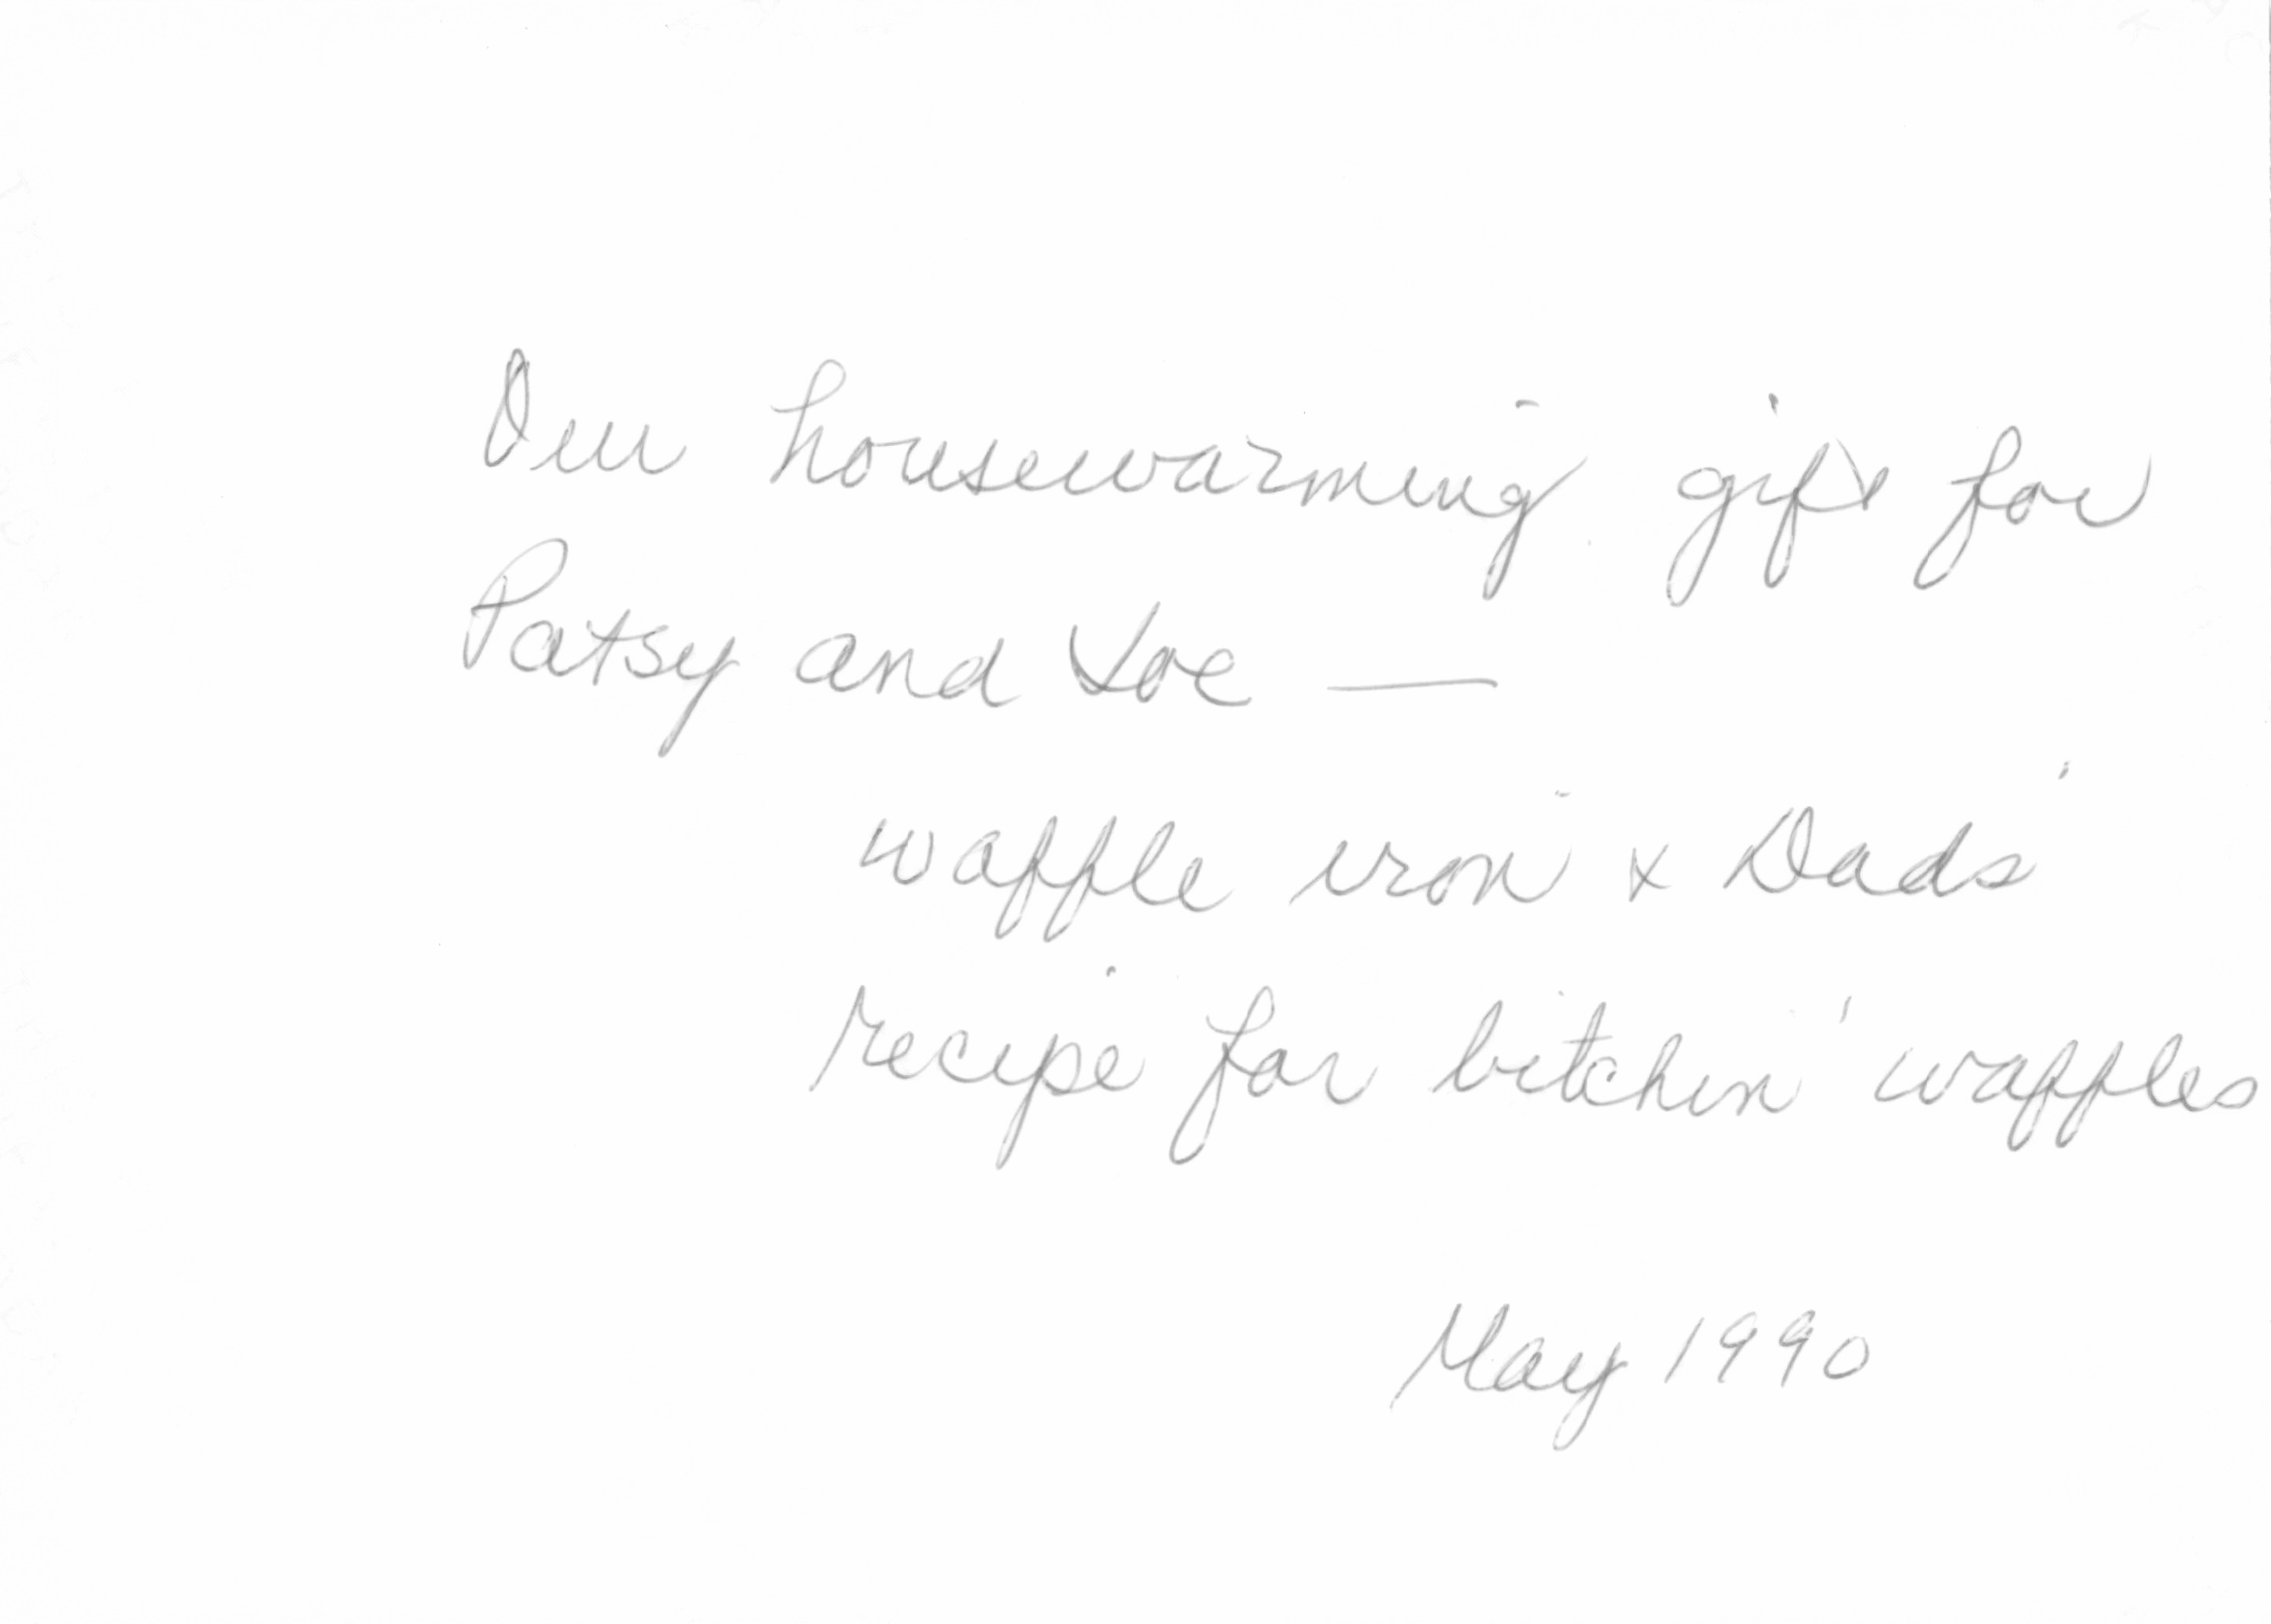 Our housewarming gift for
Patsy and Joe —
waffle iron & Dad's
recipe for bitchin' waffles
May 1990